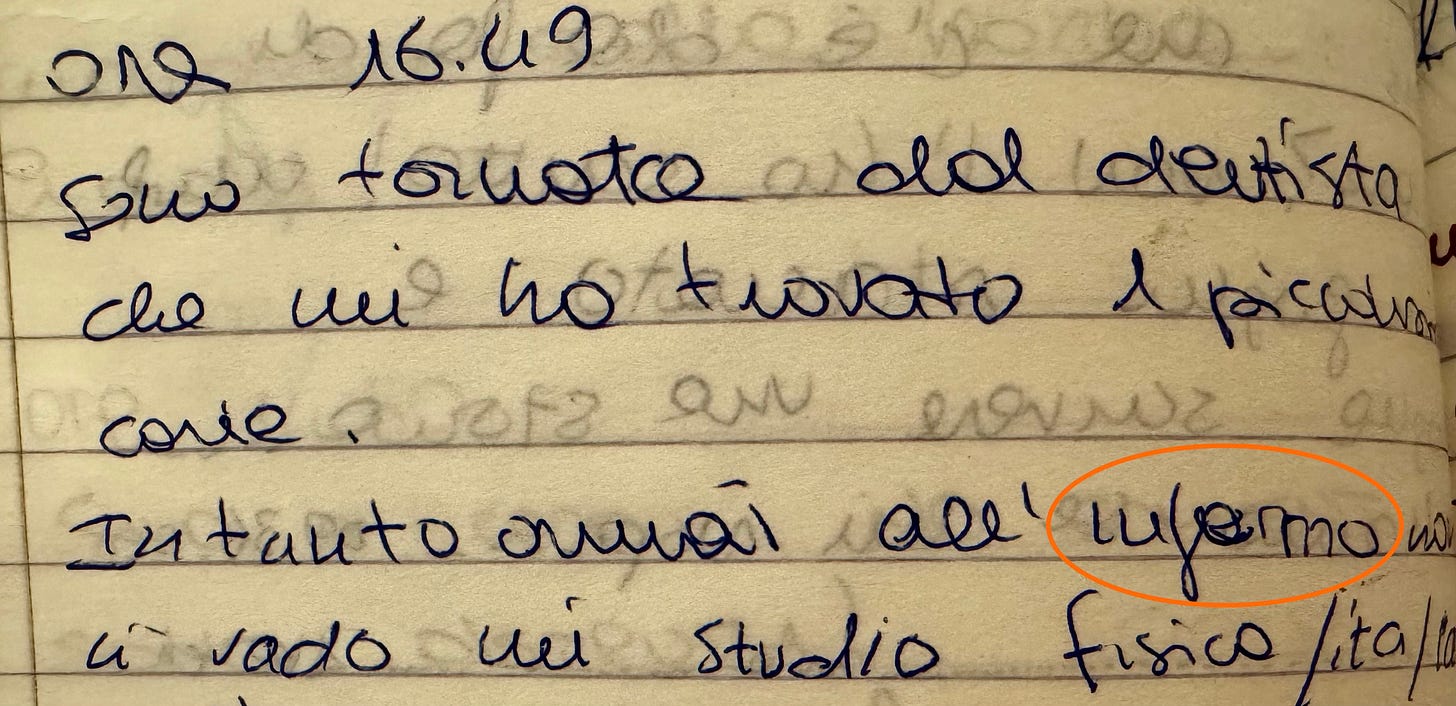 ora 16.49
Sono tornata dal dentista
che mi ha trovato 1
carie.
Intanto ormai all' infermo
ci vado mi studio fisica /ita/